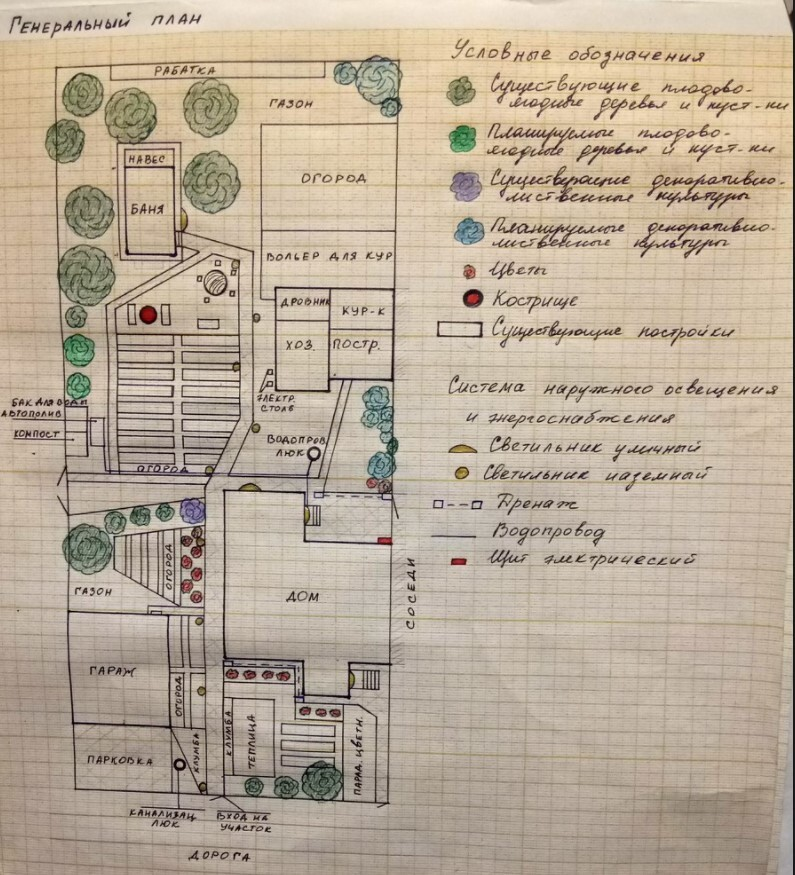 Генеральный план
Рабатка
Газон
Навес
Баня
Огород
Вольер для кур
Дровник
Кур-к
Хоз. постр.
Электр.
столб
Водопров
люк
Бак для воды
автополив
компост
Огород
Огород
Газон
Дом
Соседи
Гараж
Огород
Парковка
Клумба
Клумба
Теплица
Парад. цветн.
Канализац
люк
Вход на
участок
Дорога
Условные обозначения
Существующие плодово-
ягодные деревья и куст-ки
Планируемые плодово-
ягодные деревья и куст-ки
Существующие декоративно-
лиственные культуры
Планируемые декоративно-
лиственные культуры
Цветы
Кострище
Существующие постройки
Система наружного освещения
и энергоснабжения
Светильник уличный
Светильник наземный
Дренаж
Водопровод
Щит электрический